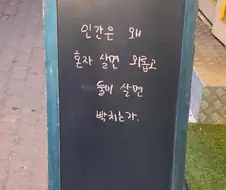 인간은 왜
혼자 살면 외롭고
둘이 살면
빡치는가.